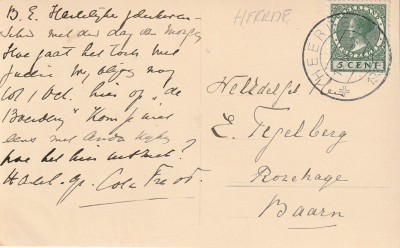 B.E. Hartelijke gelukwen-
schen met den dag van morgen
Hoe gaat het toch met
jullie. Wy blijven nog
tot 1 Oct. hier op "de
Boerdery" Kom je
eens met kyken
hoe het hier uitziet?
Hartel. gr.
HEERDE
HEERDE
5 CENT
E. Tegelberg
Rosehage
Baarn